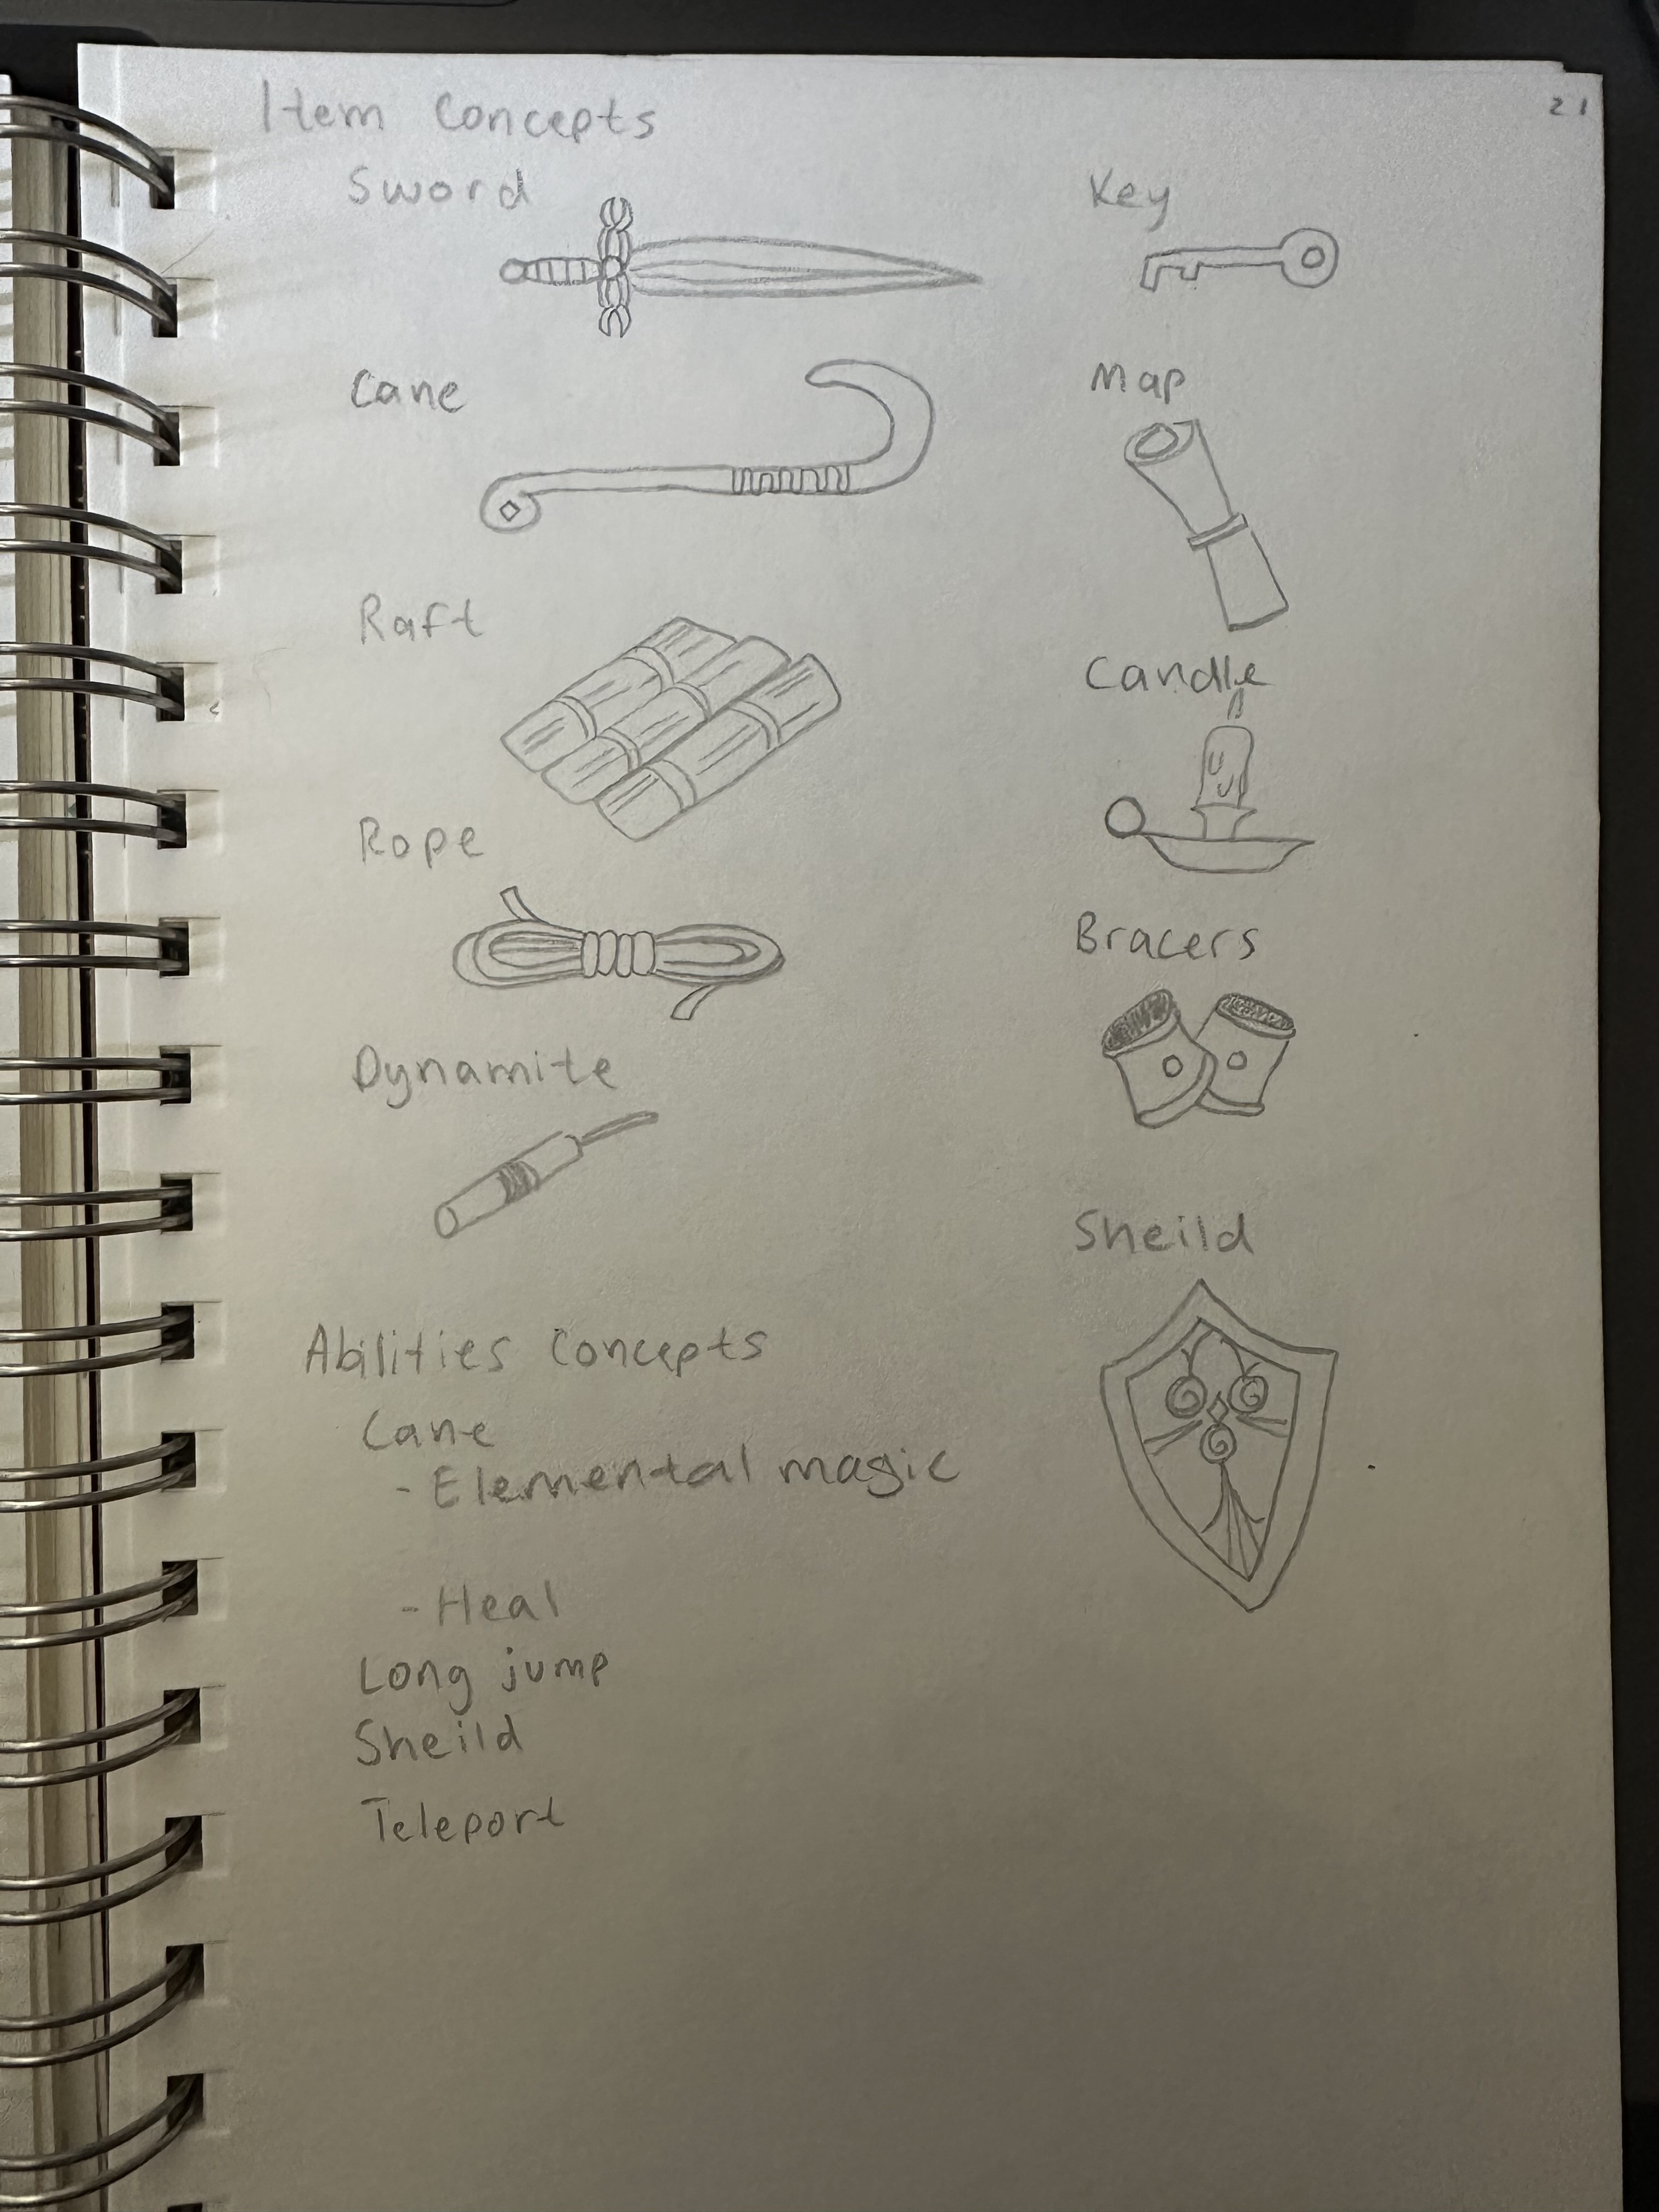 21
Item Concepts
Sword
Cane
Raft
Rope
Dynamite
Key
Map
Candle
Bracers
Sheild
Abilities Concepts
Cane
- Elemental magic
- Heal
Long jump
Sheild
Teleport